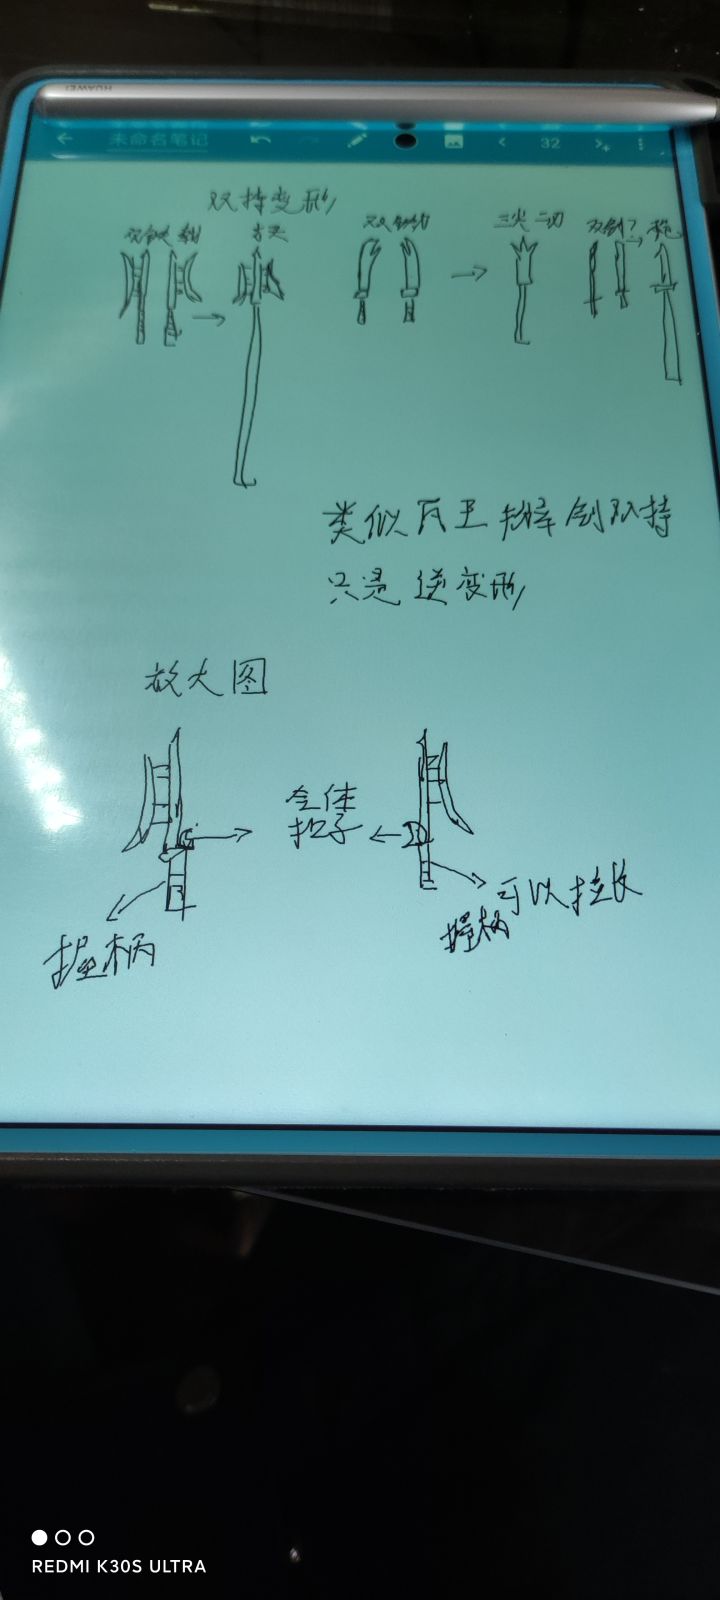 HUAWEI
未命名笔记
32
双持变形
双
方天
双
三尖二刃
双剑
枪
类似
持
只是逆变形
放大图
合体
扣子
握柄
可以拉长
握柄
REDMI K30S ULTRA